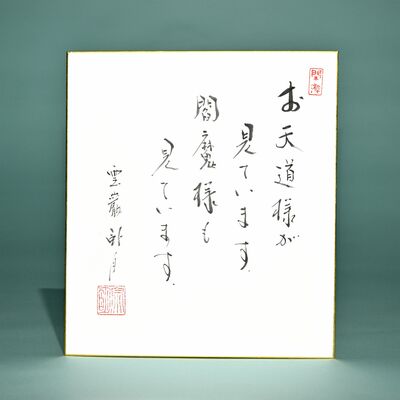 お天道様が
見ています。
閻魔様も
見ています。
雲巌